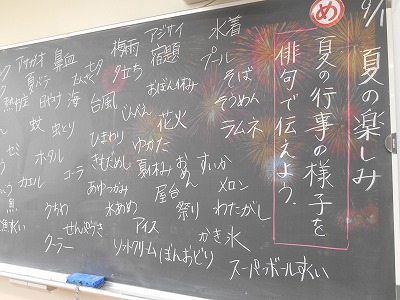 9/1 夏の楽しみ
め 夏の行事の様子を
俳句で伝えよう。
水着
プール
そば
そうめん
ラムネ
すいか
メロン
わたがし
かき氷
スーパーボールすくい
アジサイ
宿題
おぼん休み
花火
ゆかた
夏休み
おめん
屋台
祭り
アイス
ぼんおどり
梅雨
夕立ち
台風
じんべえ
ひまわり
きもだめし
水あめ
ソフトクリーム
七夕
たんざく
海
コーラ
せんぷうき
鼻血
日やけ
虫とり
うちわ
クーラー
アサガオ
夏バテ
熱中症
蚊
ホタル
セミ
カエル